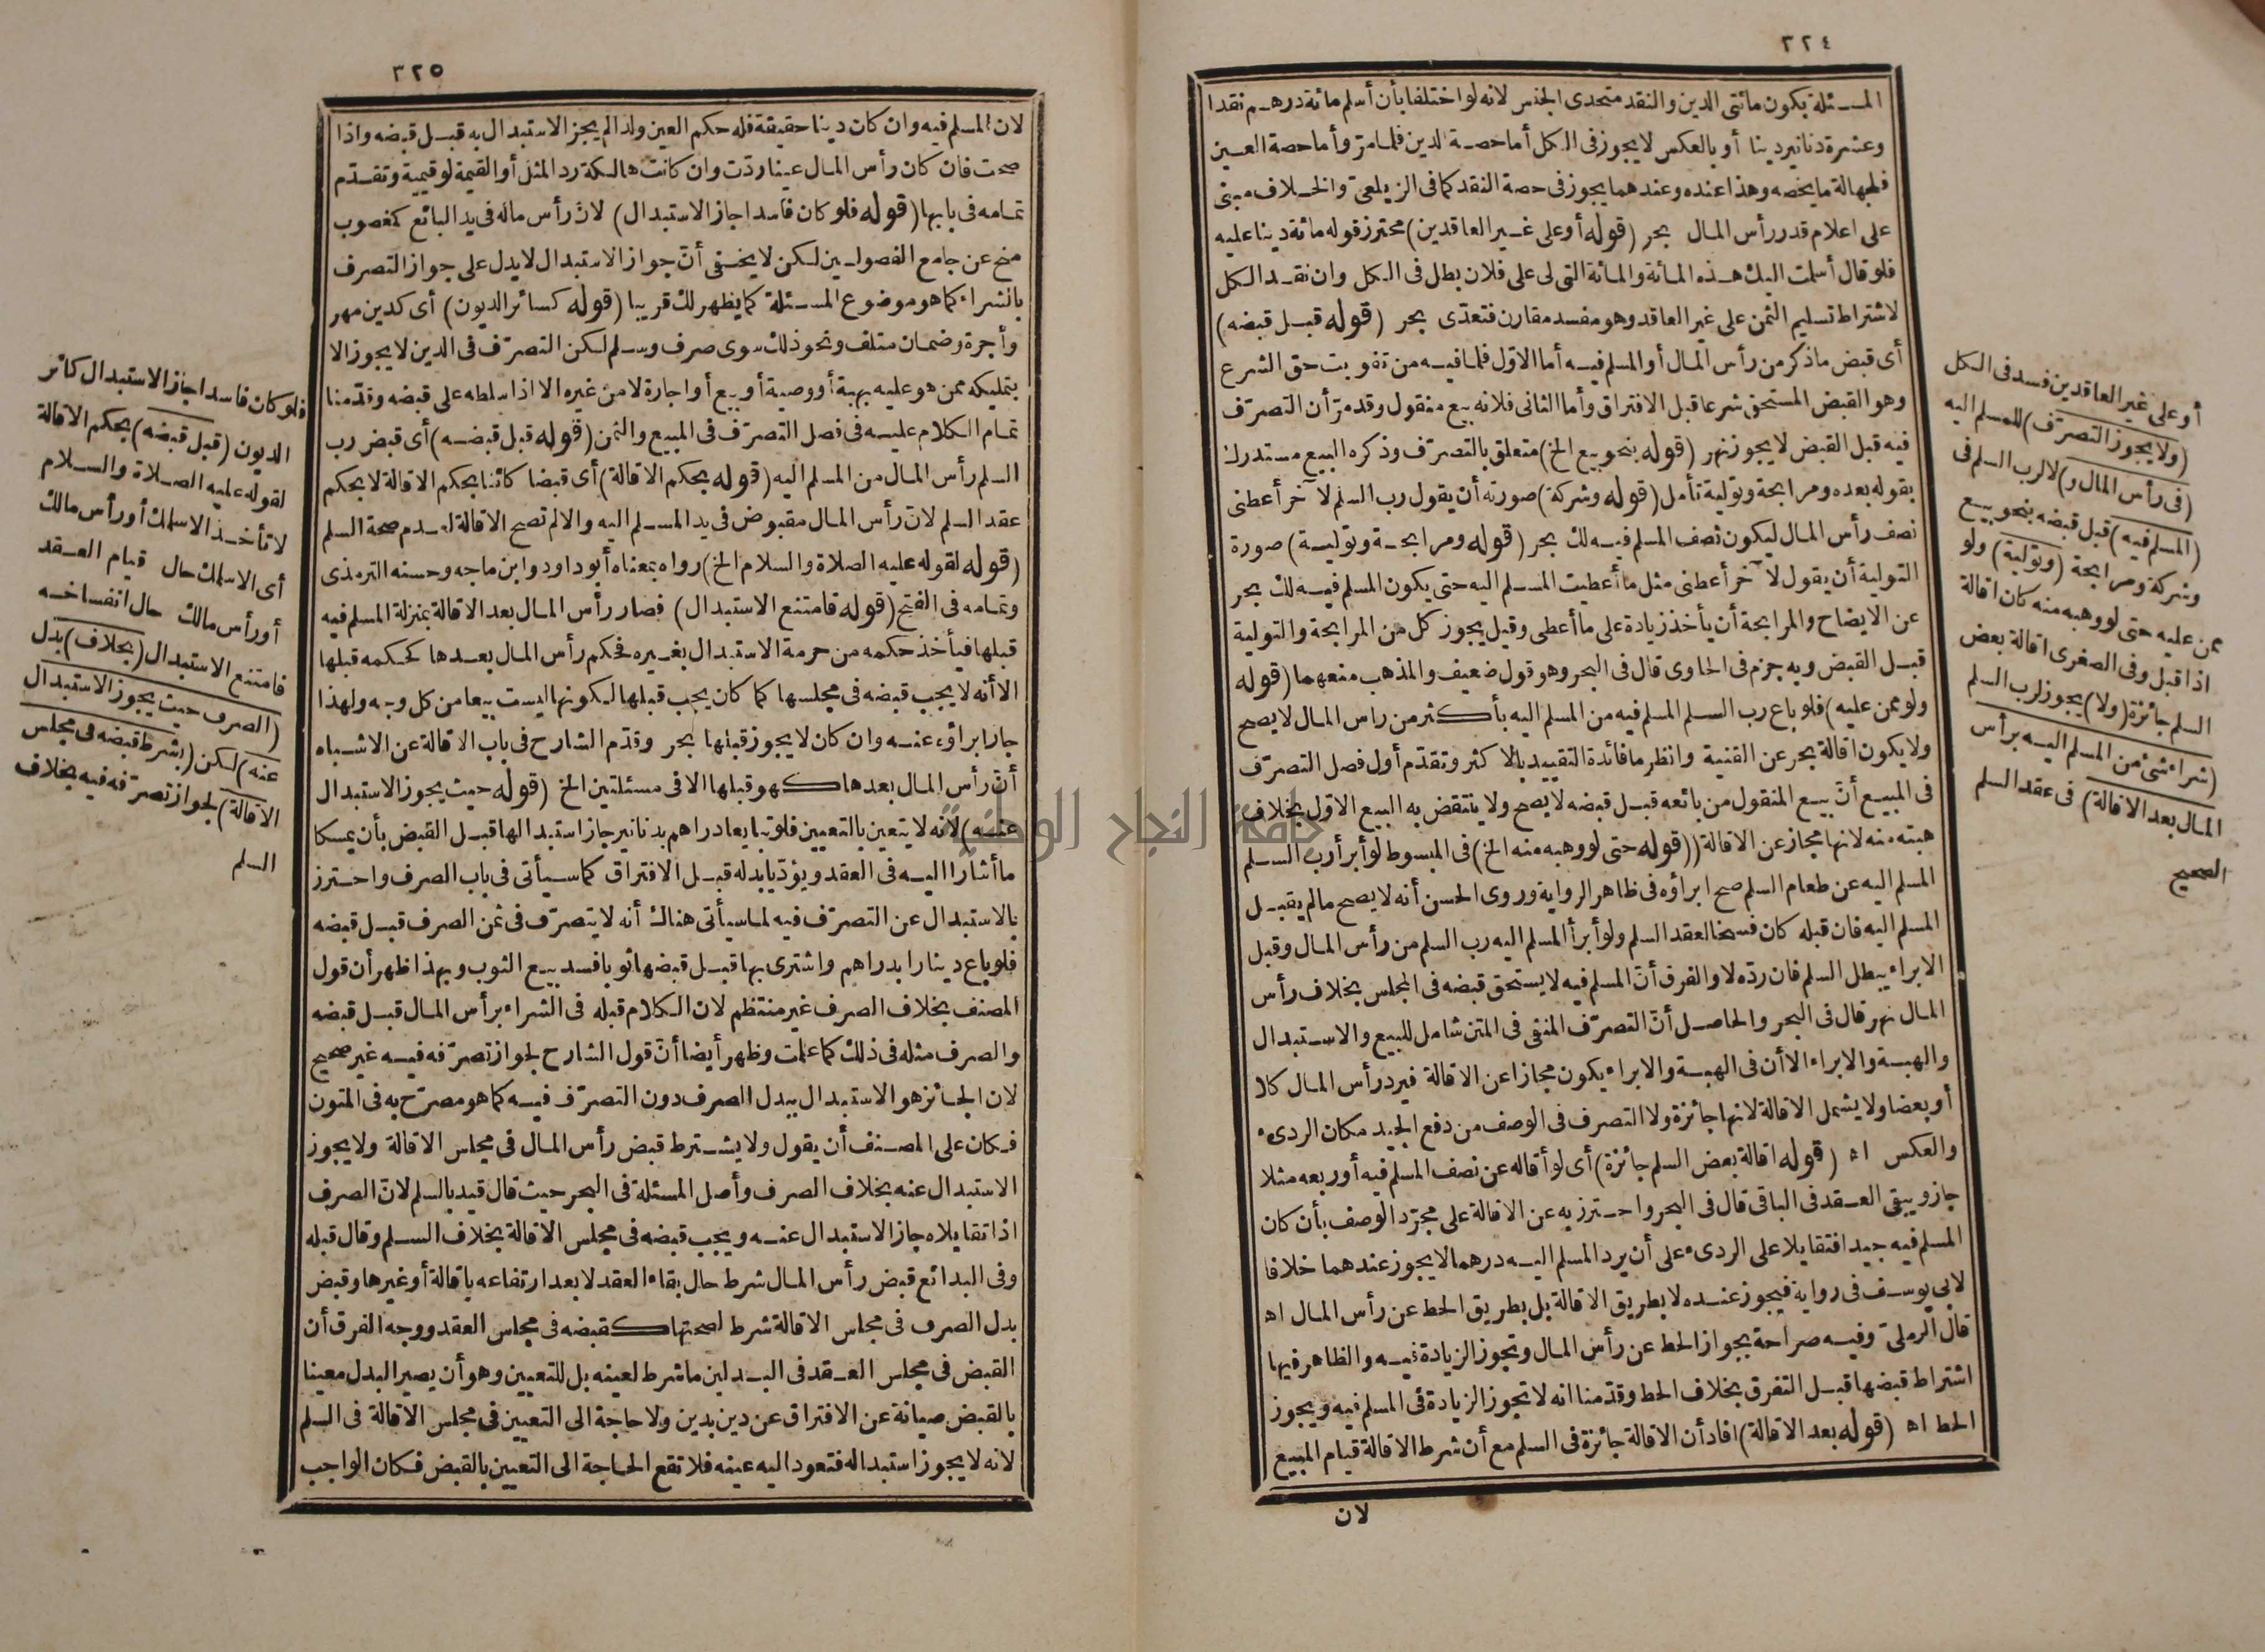 ٣٢٤
المسئلة بكون مائتى الدين والنقد متحدى الجنس لانه لو اختلفا بأن أسلم مائة درهم نقدا
وعشرة دنانير دينا أو بالعكس لا يجوز فى الكل أما حصة الدين فلما مرّ وأما حصة العين
فلجهالة ما يخصه وهذا عنده وعندهما يجوز فى حصة النقد كما فى الزيلعىّ والخلاف مبنى
على اعلام قدر رأس المال بحر (قوله أو على غير العاقدين) محترز قوله مائة دينا عليه
فلو قال أسلمت اليك هذه المائة والمائة التى لى على فلان بطل فى الكل وان نقد الكل
لاشتراط تسليم الثمن على غير العاقد وهو مفسد مقارن فتعدّى بحر (قوله قبل قبضه)
أى قبض ما ذكر من رأس المال أو المسلم فيه أما الاوّل فلما فيه من تفويت حق الشرع
وهو القبض المستحق شرعا قبل الافتراق وأما الثانى فلانه بيع منقول وقد مرّ أن التصرّف
فيه قبل القبض لا يجوز نهر (قوله بنحو بيع الخ) متعلق بالتصرّف وذكره البيع مستدرك
بقوله بعده ومرابحة وتولية تأمل (قوله وشركة) صورته أن يقول رب السلم لآخر أعطنى
نصف رأس المال ليكون نصف المسلم فيه لك بحر (قوله ومرابحة وتولية) صورة
التولية أن يقول لآخر أعطنى مثل ما أعطيت المسلم اليه حتى يكون المسلم فيه لك بحر
عن الايضاح والمرابحة أن يأخذ زيادة على ما أعطى وقيل يجوز كل من المرابحة والتولية
قبل القبض وبه جزم فى الحاوى قال فى البحر وهو قول ضعيف والمذهب منعهما (قوله
ولو ممن عليه) فلو باع رب السلم المسلم فيه من المسلم اليه بأكثر من راس المال لا يصح
ولا يكون اقالة بحر عن القنية وانظر ما فائدة التقييد بالاكثر وتقدّم أول فصل التصرّف
فى المبيع أنّ بيع المنقول من بائعه قبل قبضه لا يصح ولا ينتقض به البيع الاول بخلاف
هبته منه لانها مجاز عن الاقالة ((قوله حتى لو وهبه منه الخ) فى المبسوط لو أبرأ رب السلم
المسلم اليه عن طعام السلم صح ابراؤه فى ظاهر الرواية وروى الحسن أنه لا يصح ما لم يقبل
المسلم اليه فان قبله كان فسخا لعقد السلم ولو أبرأ المسلم اليه رب السلم من رأس المال وقبل
الابراء يبطل السلم فان ردّه لا والفرق أنّ المسلم فيه لا يستحق قبضه فى المجلس بخلاف رأس
المال نهر قال فى البحر والحاصل أنّ التصرّف المنفى فى المتن شامل للبيع والاستبدال
والهبة والابراء الا أن فى الهبة والابراء يكون مجازا عن الاقالة فيرد رأس المال كلا
أو بعضا ولا يشمل الاقالة لانها جائزة ولا التصرف فى الوصف من دفع الجيد مكان الردىء
والعكس اه (قوله اقالة بعض السلم جائزة) أى لو أقاله عن نصف المسلم فيه أو ربعه مثلا
جاز ويبقى العقد فى الباقى قال فى البحر واحترز به عن الاقالة على مجرّد الوصف بأن كان
المسلم فيه جيدا فتقايلا على الردىء على أن يرد المسلم اليه درهما لا يجوز عندهما خلافا
لابى يوسف فى رواية فيجوز عنده لا بطريق الاقالة بل بطريق الحط عن رأس المال اه
قال الرملىّ وفيه صراحة بجواز الحط عن رأس المال وتجوز الزيادة فيه والظاهر فيها
اشتراط قبضها قبل التفرق بخلاف الحط وقدّمنا انه لا تجوز الزيادة فى المسلم فيه ويجوز
الحط اه (قوله بعد الاقالة) افاد أن الاقالة جائزة فى السلم مع أن شرط الاقالة قيام المبيع
لان
أو على غير العاقدين فسد فى الكل
(ولا يجوز التصرّف) للمسلم اليه
(فى رأس المال و) لا لرب السلم فى
(المسلم فيه) قبل قبضه بنحو بيع
وشركة ومرابحة (وتولية) ولو
ممن عليه حتى لو وهبه منه كان اقالة
اذا قبل وفى الصغرى اقالة بعض
السلم جائزة (ولا) يجوز لرب السلم
(شراء شئ من المسلم اليه برأس
المال بعد الاقالة) فى عقد السلم
الصحيح
٣٢٥
لان المسلم فيه وان كان دينا حقيقة فله حكم العين ولذا لم يجز الاستبدال به قبل قبضه واذا
صحت فان كان رأس المال عينا ردّت وان كانت هالكة رد المثل أو القيمة لو قيمية وتقدّم
تمامه فى بابها (قوله فلو كان فاسدا جاز الاستبدال) لانّ رأس ماله فى يد البائع كمغصوب
منح عن جامع الفصولين لكن لا يخفى أنّ جواز الاستبدال لا يدل على جواز التصرف
بالشراء كما هو موضوع المسئلة كما يظهر لك قريبا (قوله كسائر الديون) أى كدين مهر
وأجرة وضمان متلف ونحو ذلك سوى صرف وسلم لكن التصرّف فى الدين لا يجوز الا
بتمليكه ممن هو عليه بهبة أو وصية أو بيع أو اجارة لا من غيره الا اذا سلطه على قبضه وقدّمنا
تمام الكلام عليه فى فصل التصرّف فى المبيع والثمن (قوله قبل قبضه) أى قبض رب
السلم رأس المال من المسلم اليه (قوله بحكم الاقالة) أى قبضا كائنا بحكم الاقالة لا بحكم
عقد السلم لانّ رأس المال مقبوض فى يد المسلم اليه والا لم تصح الاقالة لعدم صحة السلم
(قوله لقوله عليه الصلاة والسلام الخ) رواه بمعناه أبو داود وابن ماجه وحسنه الترمذى
وتمامه فى الفتح (قوله فامتنع الاستبدال) فصار رأس المال بعد الاقالة بمنزلة المسلم فيه
قبلها فيأخذ حكمه من حرمة الاستبدال بغيره فحكم رأس المال بعدها كحكمه قبلها
الا أنه لا يجب قبضه فى مجلسها كما كان يجب قبلها لكونها ليست بيعا من كل وجه ولهذا
جاز ابراؤه عنه وان كان لا يجوز قبلها بحر وقدّم الشارح فى باب الاقالة عن الاشباه
أنّ رأس المال بعدها كهو قبلها الا فى مسئلتين الخ (قوله حيث يجوز الاستبدال
عنه) لانه لا يتعين بالتعيين فلو تبايعا دراهم بدنانير جاز استبدالها قبل القبض بأن يمسكا
ما أشارا اليه فى العقد ويؤدّيا بدله قبل الافتراق كما سيأتى فى باب الصرف واحترز
بالاستبدال عن التصرّف فيه لما سيأتى هناك أنه لا يتصرّف فى ثمن الصرف قبل قبضه
فلو باع دينارا بدراهم واشترى بها قبل قبضها ثوبا فسد بيع الثوب وبهذا ظهر أن قول
المصنف بخلاف الصرف غير منتظم لان الكلام قبله فى الشراء برأس المال قبل قبضه
والصرف مثله فى ذلك كما علمت وظهر أيضا أنّ قول الشارح لجواز تصرّفه فيه غير صحيح
لان الجائز هو الاستبدال ببدل الصرف دون التصرّف فيه كما هو مصرّح به فى المتون
فكان على المصنف أن يقول ولا يشترط قبض رأس المال فى مجلس الاقالة ولا يجوز
الاستبدال عنه بخلاف الصرف وأصل المسئلة فى البحر حيث قال قيد بالسلم لانّ الصرف
اذا تقايلاه جاز الاستبدال عنه ويجب قبضه فى مجلس الاقالة بخلاف السلم وقال قبله
وفى البدائع قبض رأس المال شرط حال بقاء العقد لا بعد ارتفاعه باقالة أو غيرها وقبض
بدل الصرف فى مجلس الاقالة شرط لصحتها كقبضه فى مجلس العقد ووجه الفرق أن
القبض فى مجلس العقد فى البدلين ما شرط لعينه بل للتعيين وهو أن يصير البدل معينا
بالقبض صيانة عن الافتراق عن دين بدين ولا حاجة الى التعيين فى مجلس الاقالة فى السلم
لانه لا يجوز استبداله فتعود اليه عينه فلا تقع الحاجة الى التعيين بالقبض فكان الواجب
فلو كان فاسدا جاز الاستبدال كسائر
الديون (قبل قبضه) بحكم الاقالة
لقوله عليه الصلاة والسلام
لا تأخذ الا سلمك أو رأس مالك
أى الا سلمك حال قيام العقد
أو رأس مالك حال انفساخه
فامتنع الاستبدال (بخلاف) بدل
(الصرف حيث يجوز الاستبدال
عنه) لكن (بشرط قبضه فى مجلس
الاقالة) لجواز تصرّفه فيه بخلاف
السلم
جامعة النجاح الوطنية